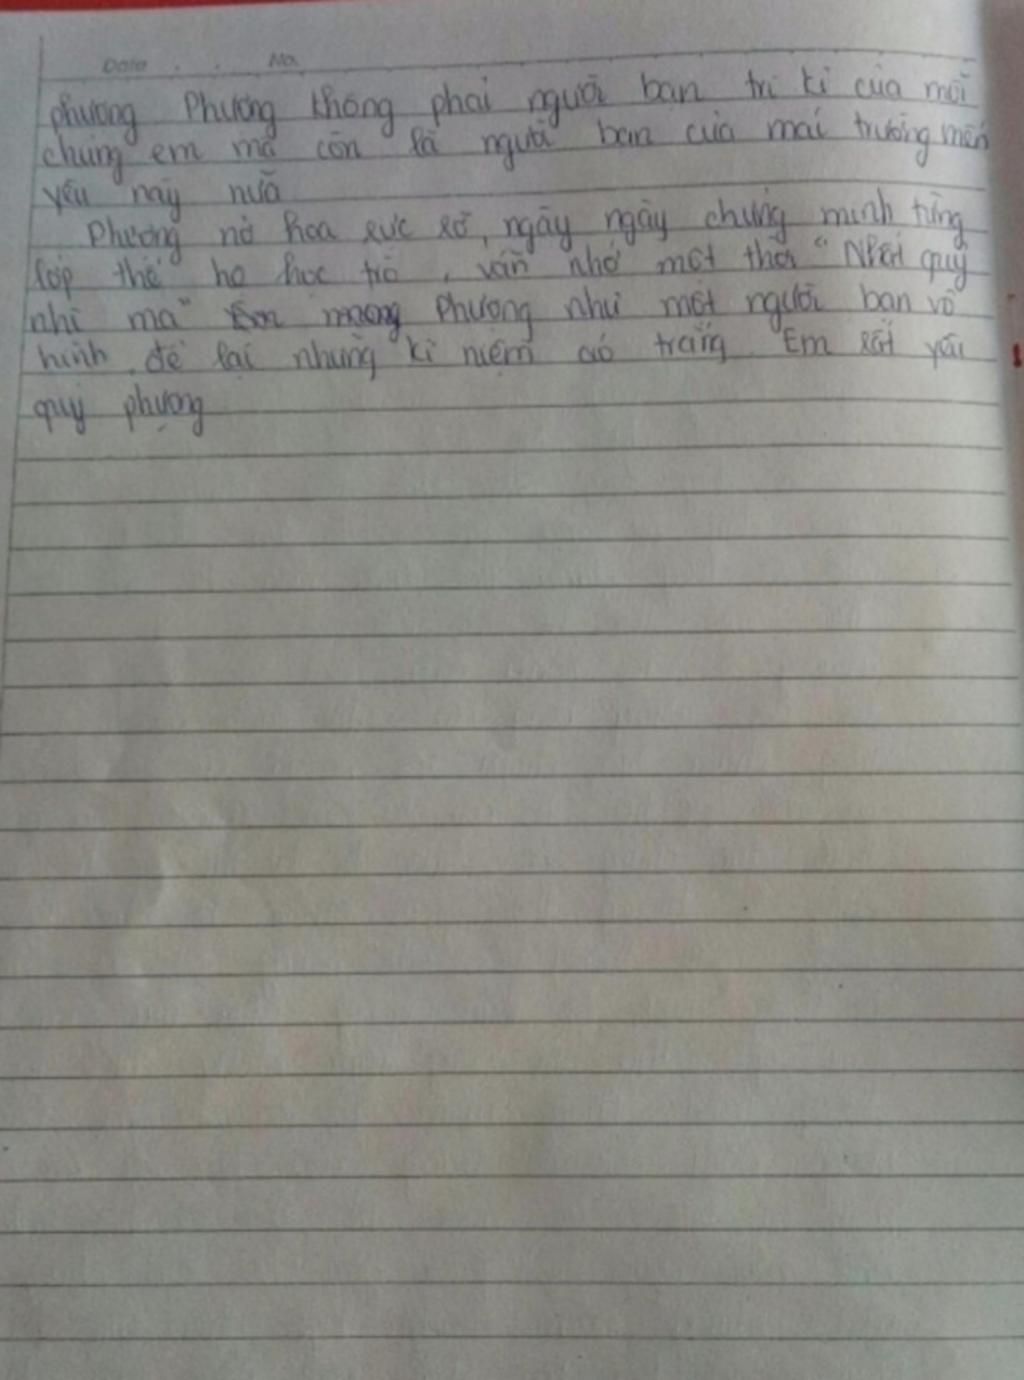 Date . . No.
phượng Phượng không phải người bạn tri kỉ của mỗi
chúng em mà còn là người bạn của mái trường mến
yêu này nữa
Phượng nở hoa rực rỡ, ngày ngày chứng minh từng
lớp thế hệ học trò, vẫn nhớ một thời "Nhất quỷ
nhì ma" Phượng như một người bạn vô
hình, để lại những kỉ niệm áo trắng. Em rất yêu
quý phượng